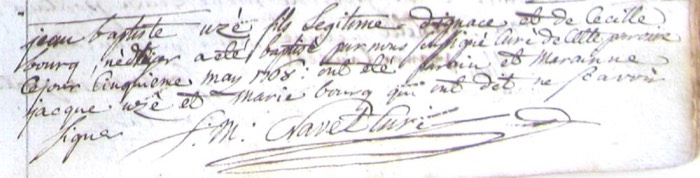 jean baptiste uzé fils Legitime d'ignace et de Cecille
bourg, né hier a eté baptisé par nous soussigné Curé de Cette paroisse
Ce jour Cinquiene may 1708: ont eté parain et Maranne
jacque uzé et Marie bourg qui ont dit ne Scavoir
Signer J: M: Navet Curé